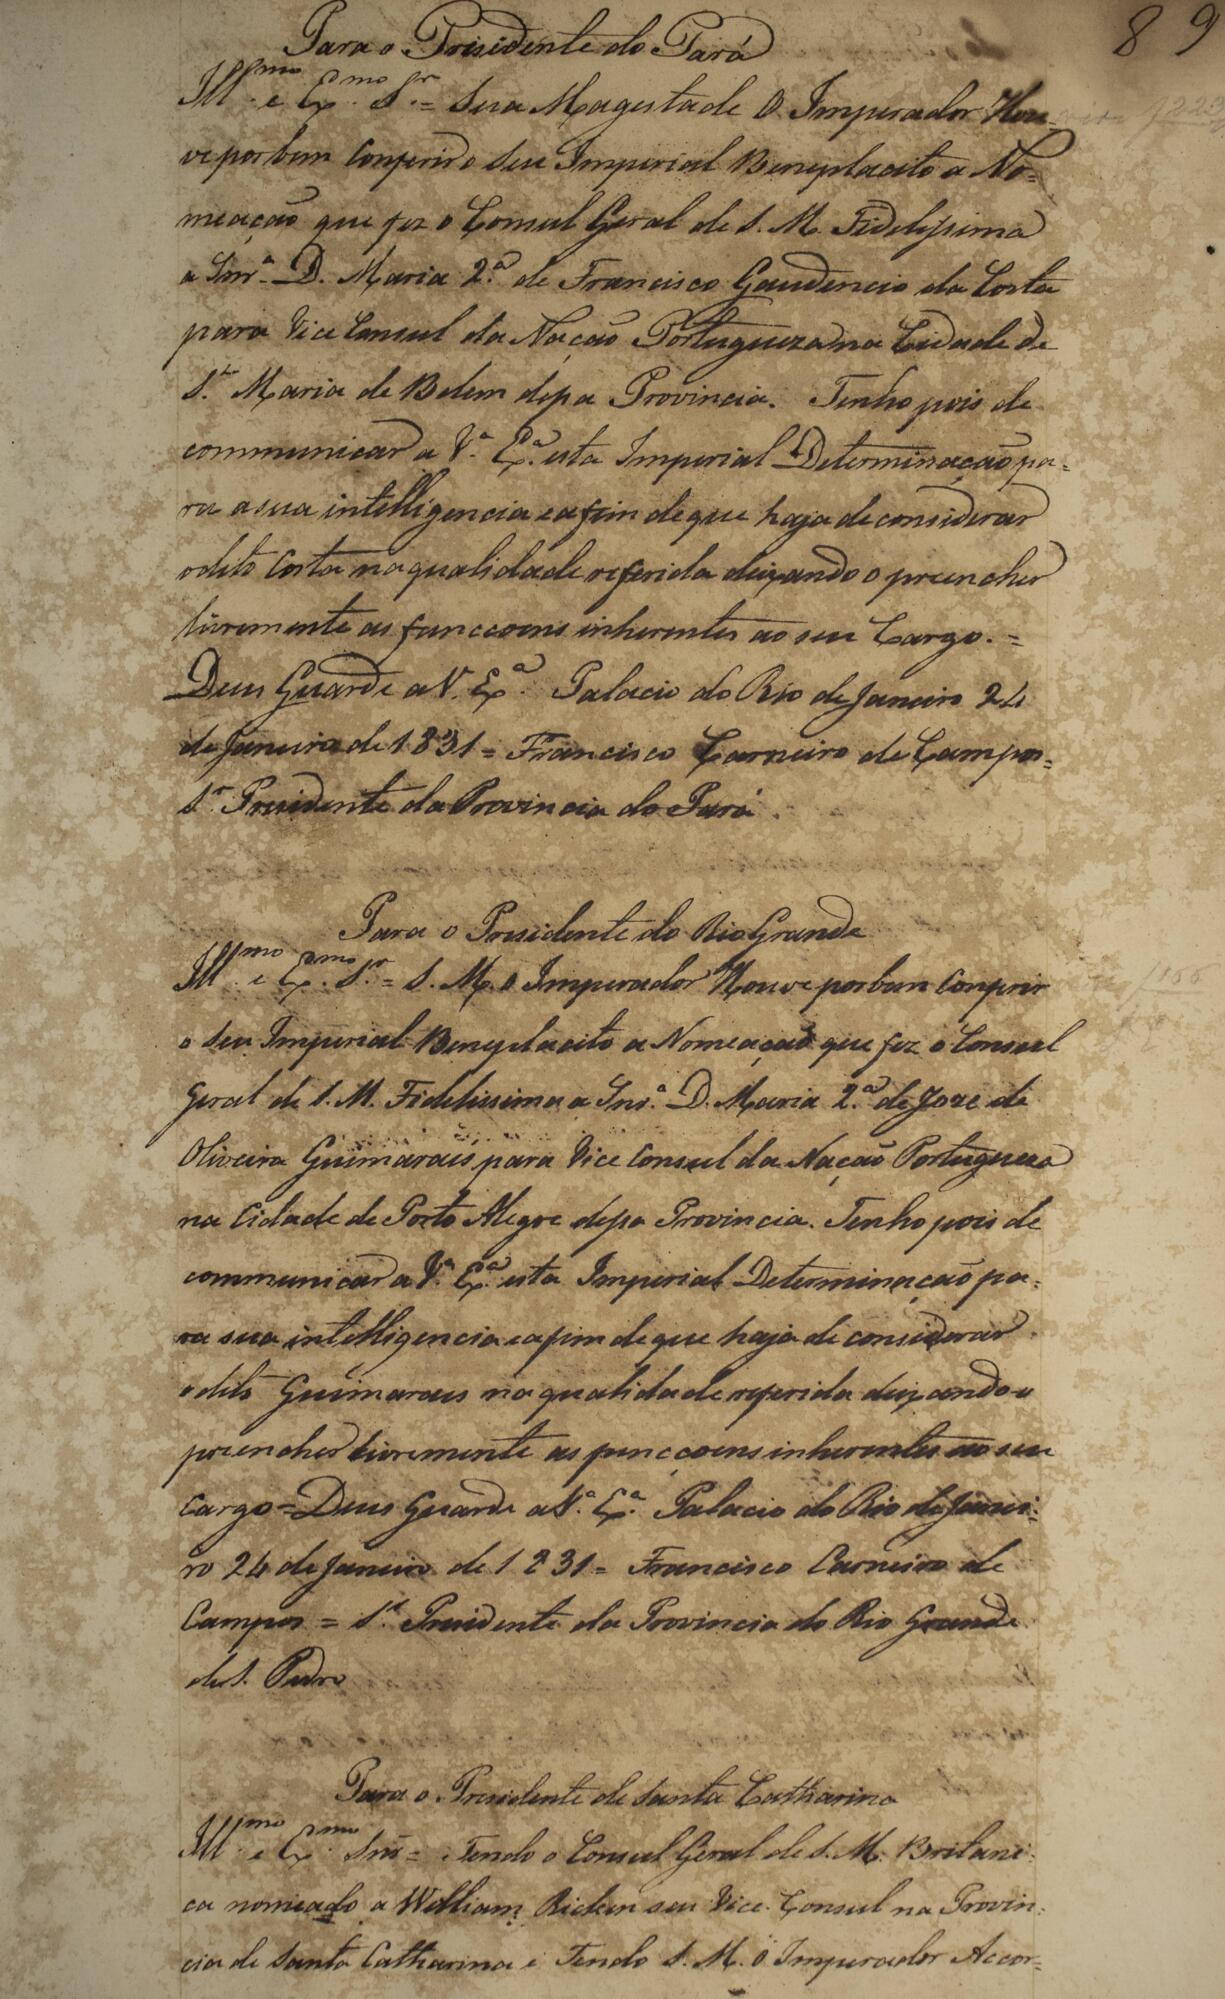 89
Para o Prisidente do Pará
Ill.mo e Ex.mo S.r = Sua Magestade O Imperador Hou-
ve por bem Conferir o Seu Imperial Beneplacito a No-
meação que fez o Consul Geral de S. M. Fidelissima
a Snr.a D. Maria 2.a de Francisco Gaudencio da Costa
para Vice Consul da Nação Portugueza na Cidade de
S.ta Maria de Belem dessa Provincia. Tenho pois de
communicar a V.a Ex.a esta Imperial Determinação pa-
ra a sua intelligencia e afim de que haja de considerar
o dito Costa na qualidade referida deixando o preencher
livremente as funccoens inherentes ao seu Cargo. =
Deus Guarde a V. Ex.a Palacio do Rio de Janeiro 24
de Janeiro de 1831 = Francisco Carneiro de Campos =
S.r Presidente da Provincia do Pará.
Para o Presidente do Rio Grande
Ill.mo e Ex.mo S.r = S. M. O Imperador Houve por bem Conferir
o Seu Imperial Beneplacito a Nomeação que fez o Consul
Geral de S. M. Fidelissima a Snr.a D. Maria 2.a de Joze de
Oliveira Guimaraes para Vice Consul da Nação Portugueza
na Cidade de Porto Alegre dessa Provincia. Tenho pois de
communicar a V.a Ex.a esta Imperial Determinação pa-
ra sua intelligencia e afim de que haja de considerar
o dito Guimaraes na qualidade referida deixando-o
preencher livremente as funccoens inherentes ao seu
Cargo = Deus Guarde a V.a Ex.a Palacio do Rio de Janei-
ro 24 de Janeiro de 1831 = Francisco Carneiro de
Campos = S.r Presidente da Provincia do Rio Grande
de S. Pedro
Para o Presidente de Santa Catharina
Ill.mo e Ex.mo Snr = Tendo o Consul Geral de S. M. Britani-
ca nomeado a William seu Vice Consul na Provin-
cia de Santa Catharina e Tendo S. M. O Imperador Accor-